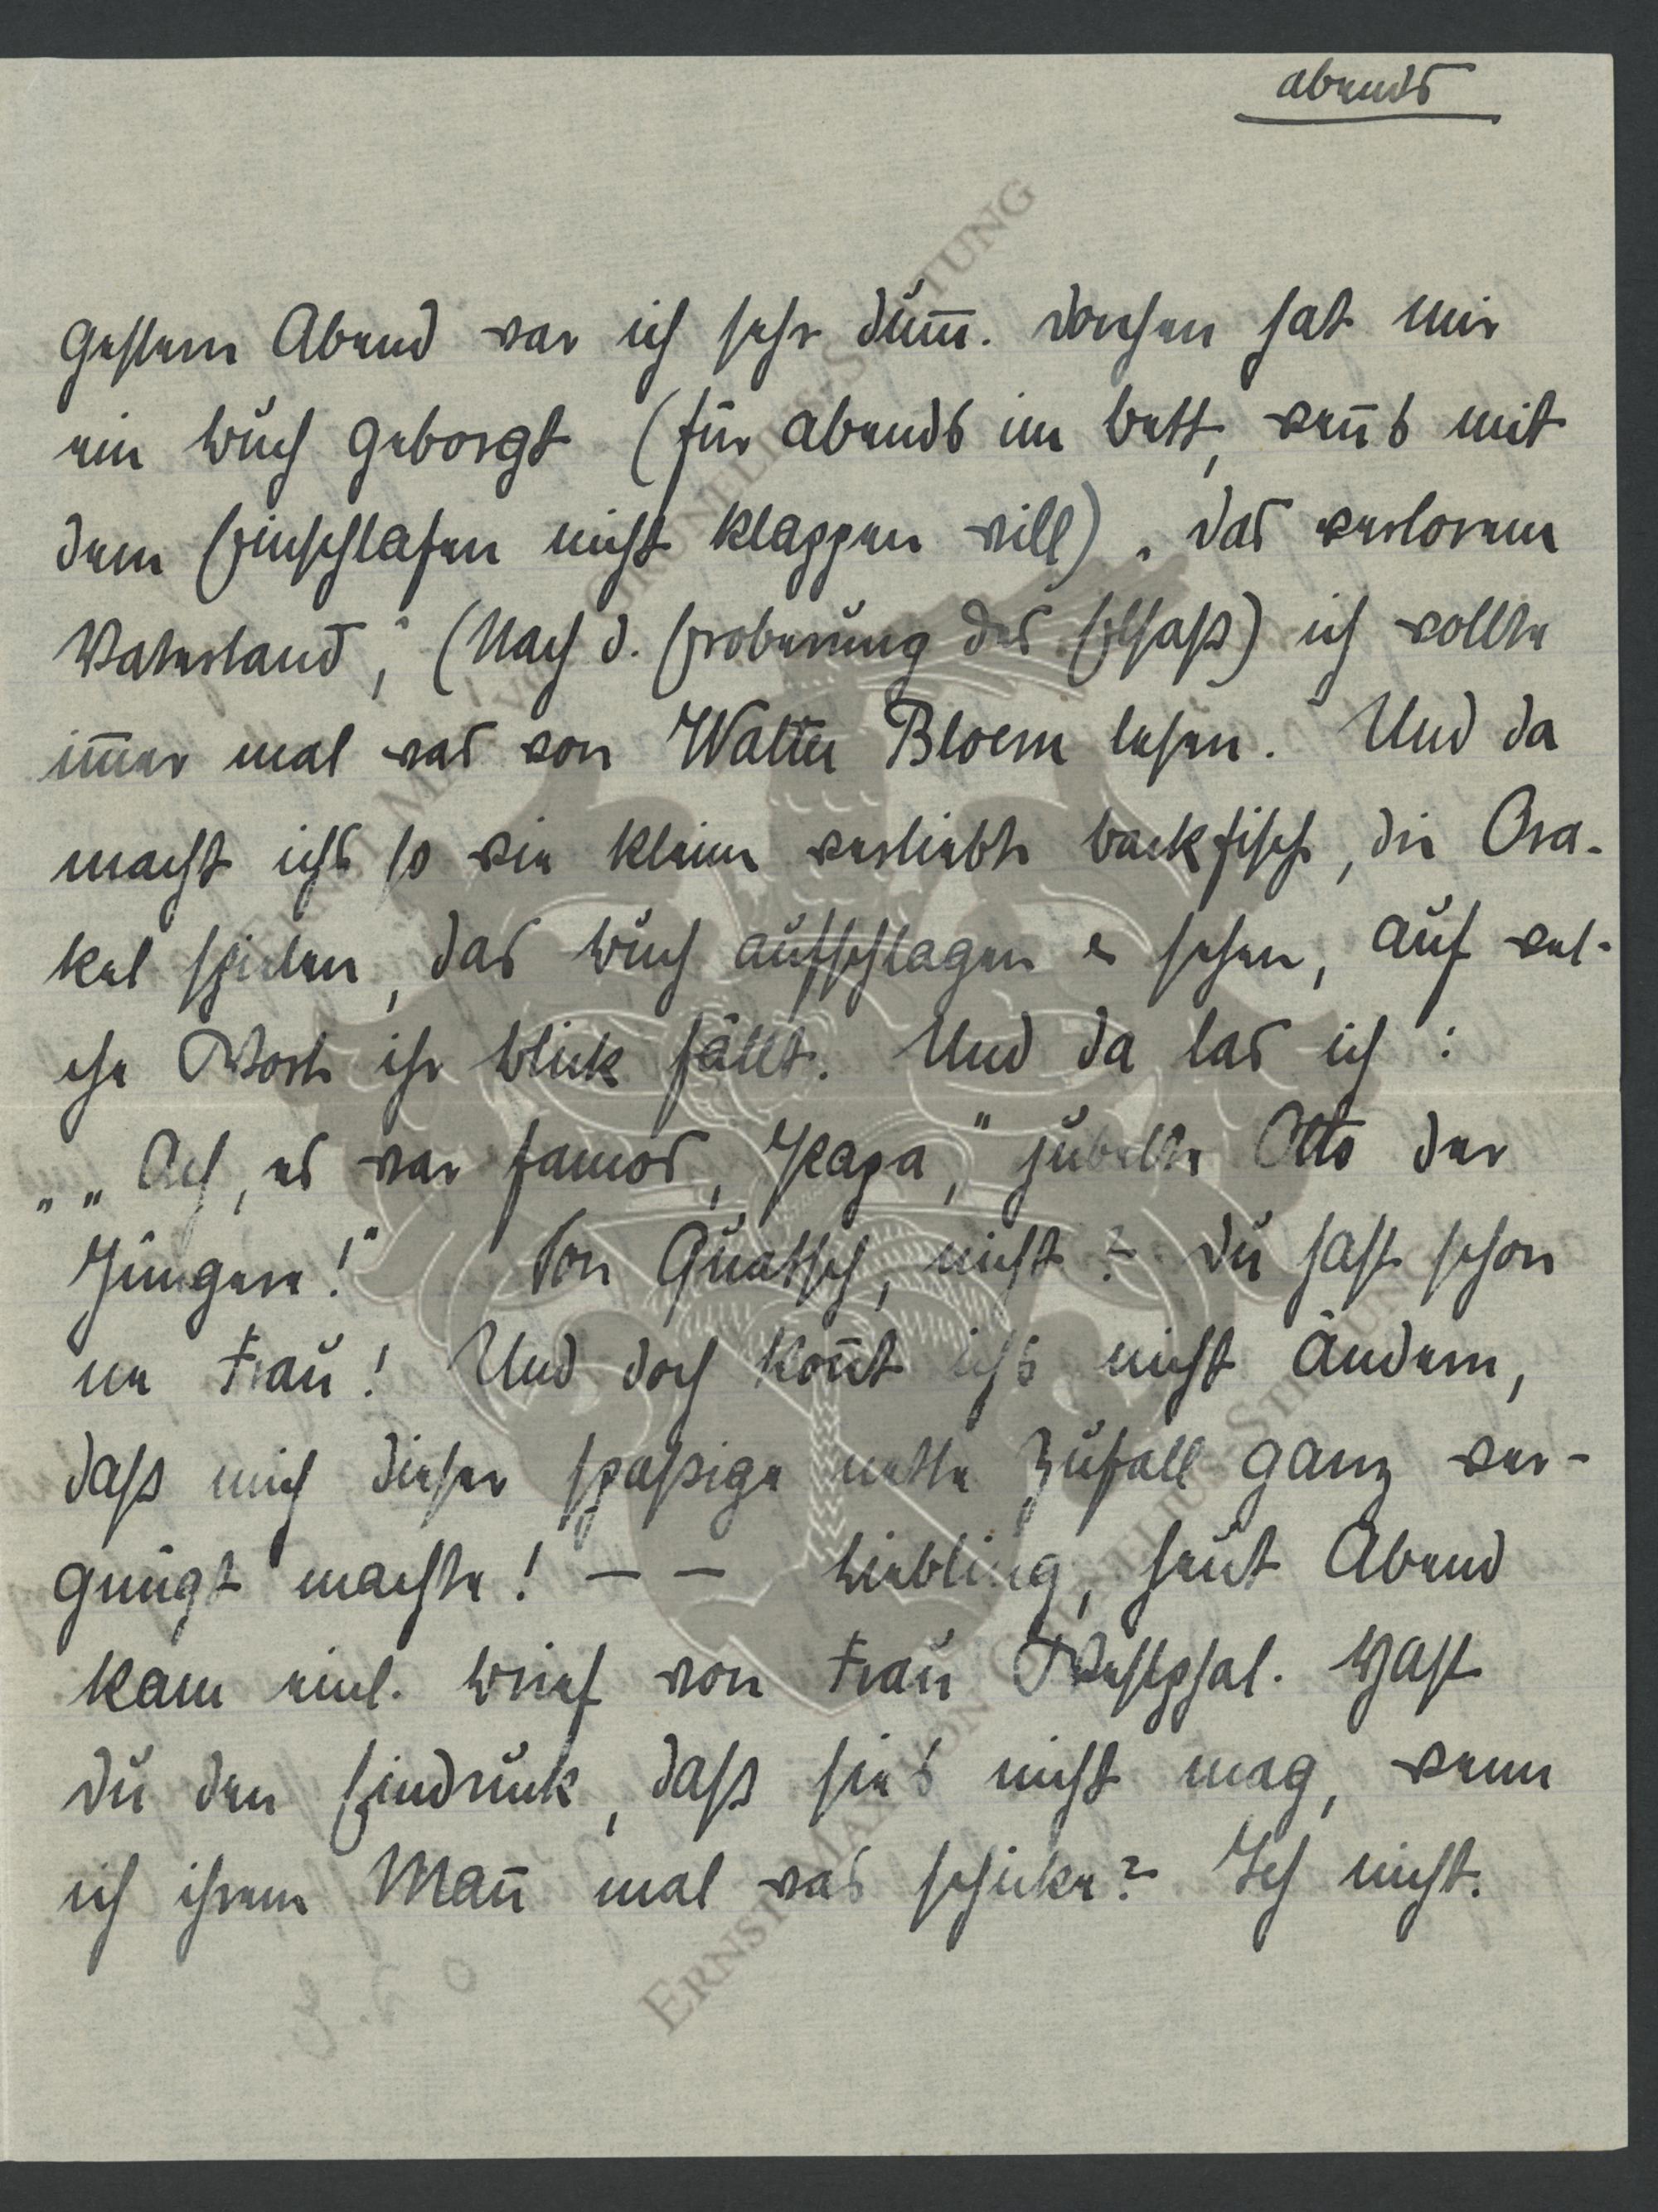 abends
Gestern Abend war ich sehr dum̅. Dorchen hat mir
ein Buch geborgt (für abends im Bett, wen̅s mit
dem Einschlafen nicht klappen will) „Das verlorene
Vaterland“, (Nach d. Eroberung des Elsaß) ich wollte
im̅er mal was von Walter Bloem lesen. Und da
macht ichs so wie kleine verliebte Backfische, die Ora-
kel spielen, das Buch aufschlagen & sehen, auf wel-
che Worte ihr Blick fällt. Und da las ich:
„„Ach, es war famos, Papa,“ jubelte Otto der
Jüngere!“ Son Quatsch, nicht? Du hast schon
ne Frau! Und doch kon̅t ichs nicht ändern,
daß mich dieser spaßige nette Zufall ganz ver-
gnügt machte! – – Liebling, heut Abend
kam einl. Brief von Frau Westphal. Hast
Du den Eindruck, daß sie's nicht mag, wenn
ich ihrem Man̅ mal was schicke? Ich nicht.
ERNST MAX VON GRUNELIUS-STIFTUNG
ERNST MAX VON GRUNELIUS-STIFTUNG